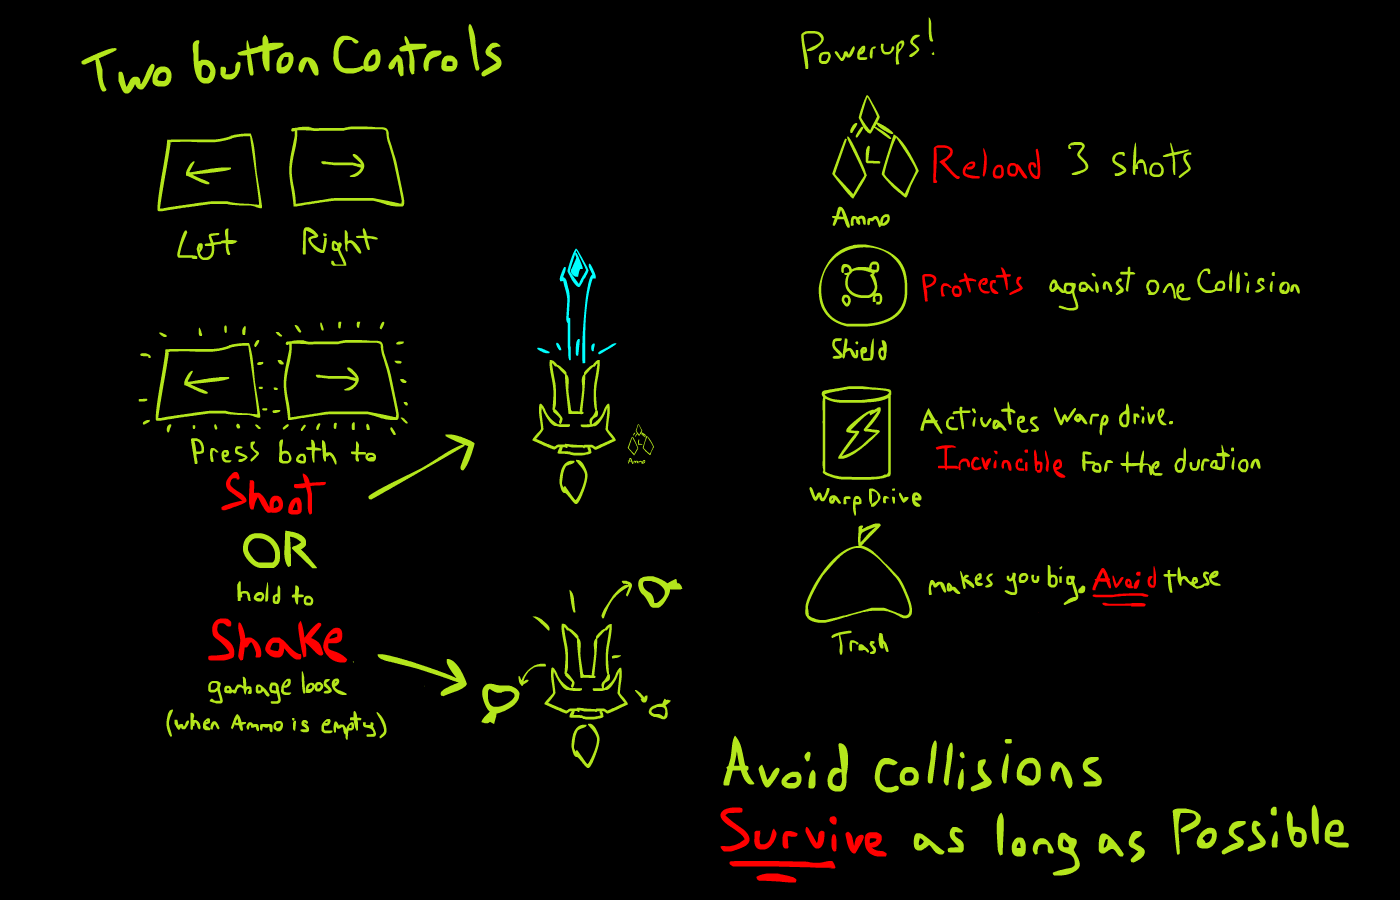 Two button Controls
Left
Right
Press both to
Shoot
OR
hold to
Shake
garbage loose
(when Ammo is empty)
Ammo
Powerups!
L
Reload 3 shots
Ammo
Protects against one Collision
Shield
Activates Warp drive.
Incvincible For the duration
Warp Drive
makes you big. Avoid these
Trash
Avoid collisions
Survive as long as Possible